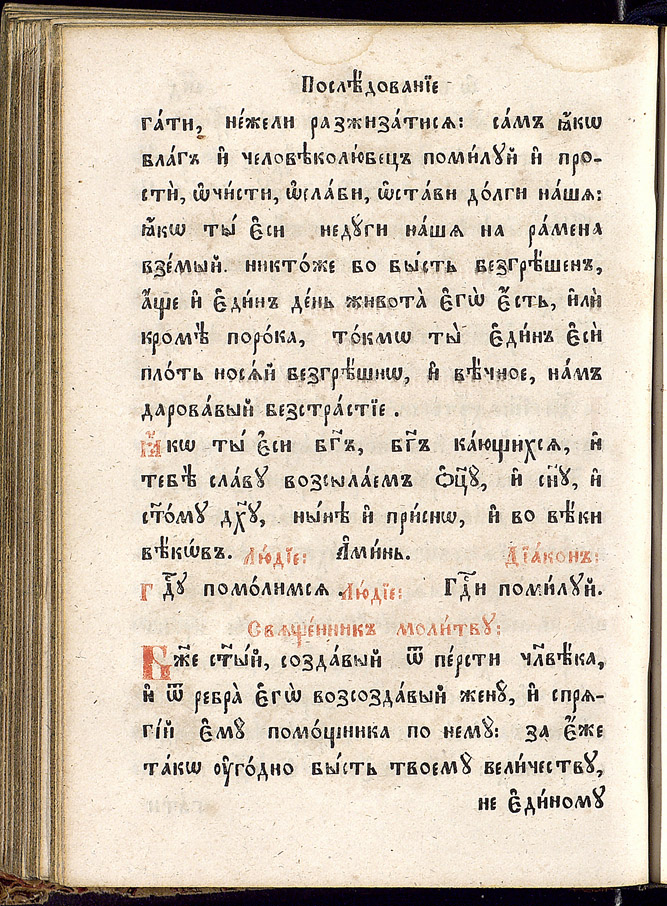 Послѣ́дованїе
га́ти, не́жели разжиза́тися: са́мъ ꙗ҆́кѡ
бла́гъ и҆ человѣколю́бецъ поми́лꙋй и҆ про-
стѝ, ѡ҆чи́сти, ѡ҆сла́би, ѡ҆ста́ви до́лги на́шѧ:
ꙗ҆́кѡ ты̀ є҆сѝ недꙋ́ги на́шѧ на ра́мена
взе́мый. никто́же бо бы́сть безгрѣ́шенъ,
а҆́ще и҆ є҆ди́нъ де́нь живота̀ є҆гѡ̀ є҆́сть, и҆лѝ
кромѣ̀ поро́ка, то́кмѡ ты̀ є҆ди́нъ є҆сѝ
пло́ть нося́й безгрѣ́шнѡ, и҆ вѣ́чное, на́мъ
дарова́вый безстра́стїе.
Ꙗ҆́кѡ ты̀ є҆сѝ бг҃ъ, бг҃ъ ка́ющихся, и҆
тебѣ̀ сла́вꙋ возсыла́емъ Ѻ҆ц҃ꙋ̀, и҆ сн҃ꙋ, и҆
ст҃о́мꙋ дх҃ꙋ, ны́нѣ и҆ при́снѡ, и҆ во вѣ́ки
вѣкѡ́въ. Лю́дїе: А҆ми́нь. Дїа́конъ:
Гдⷭ҇ꙋ помо́лимся. Лю́дїе: Гдⷭ҇и поми́лꙋй.
Свѧще́нникъ моли́твꙋ:
Бж҃е ст҃ы́й, созда́вый ѿ пе́рсти чл҃вѣ́ка,
и҆ ѿ ребра̀ є҆гѡ̀ возсозда́вый женꙋ̀, и҆ спря-
гі́й є҆мꙋ̀ помо́щника по немꙋ̀: за є҆́же
та́кѡ ᲂу҆го́дно бы́сть твоемꙋ̀ вели́честву,
не є҆ди́номꙋ